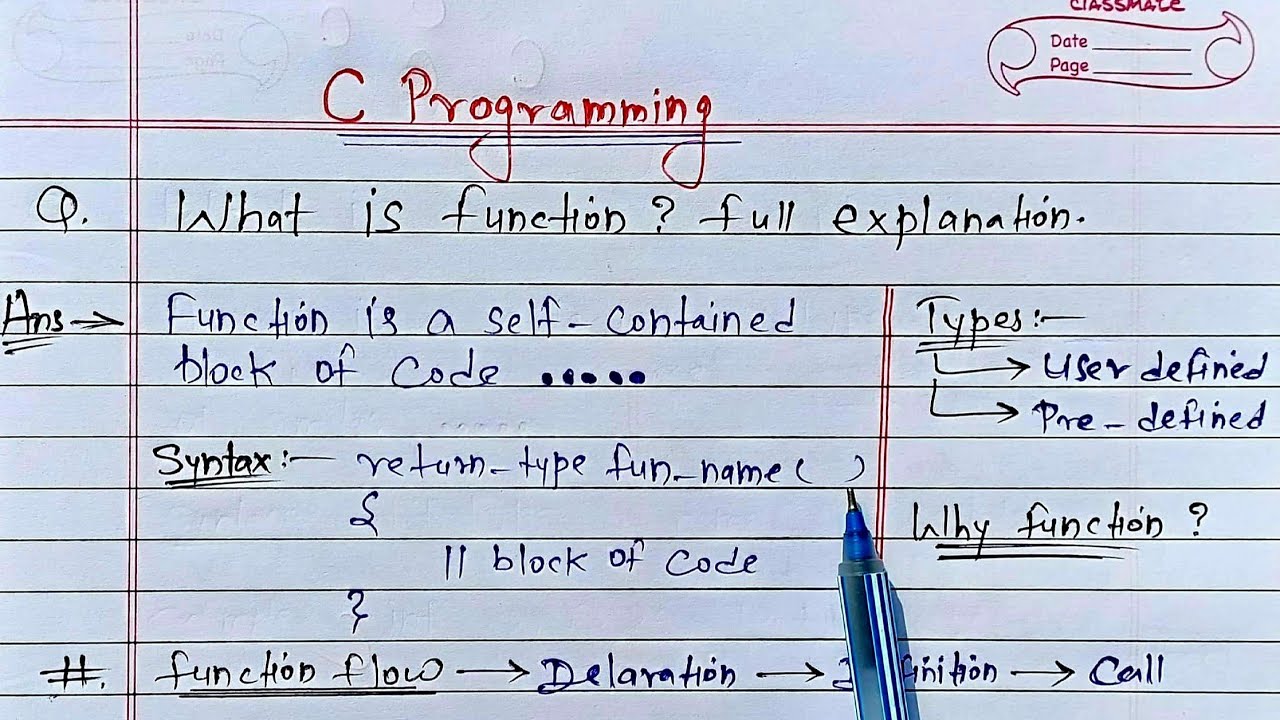 CLASSMATE
Date
Page
C Programming
Q. What is function? full explanation.
Ans → Function is a self-contained
block of code •••••
Syntax:— return-type fun-name( )
{
// block of code
}
Types:—
→ User defined
→ Pre-defined
Why function?
#. function flow → Delaration → → Call